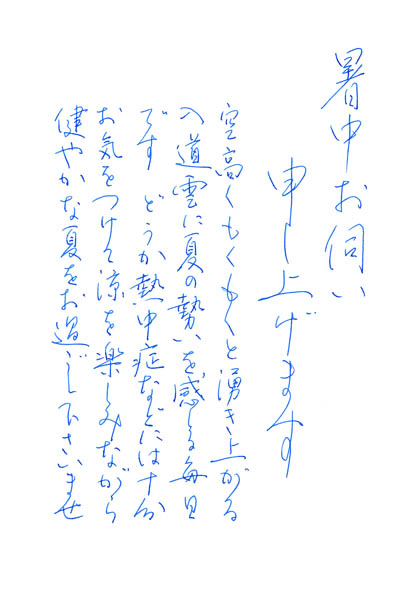 暑中お伺い
申し上げます
空高くもくもくと湧き上がる
入道雲に夏の勢いを感じる毎日
です どうか熱中症などには十分
お気をつけて涼を楽しみながら
健やかな夏をお過ごし下さいませ